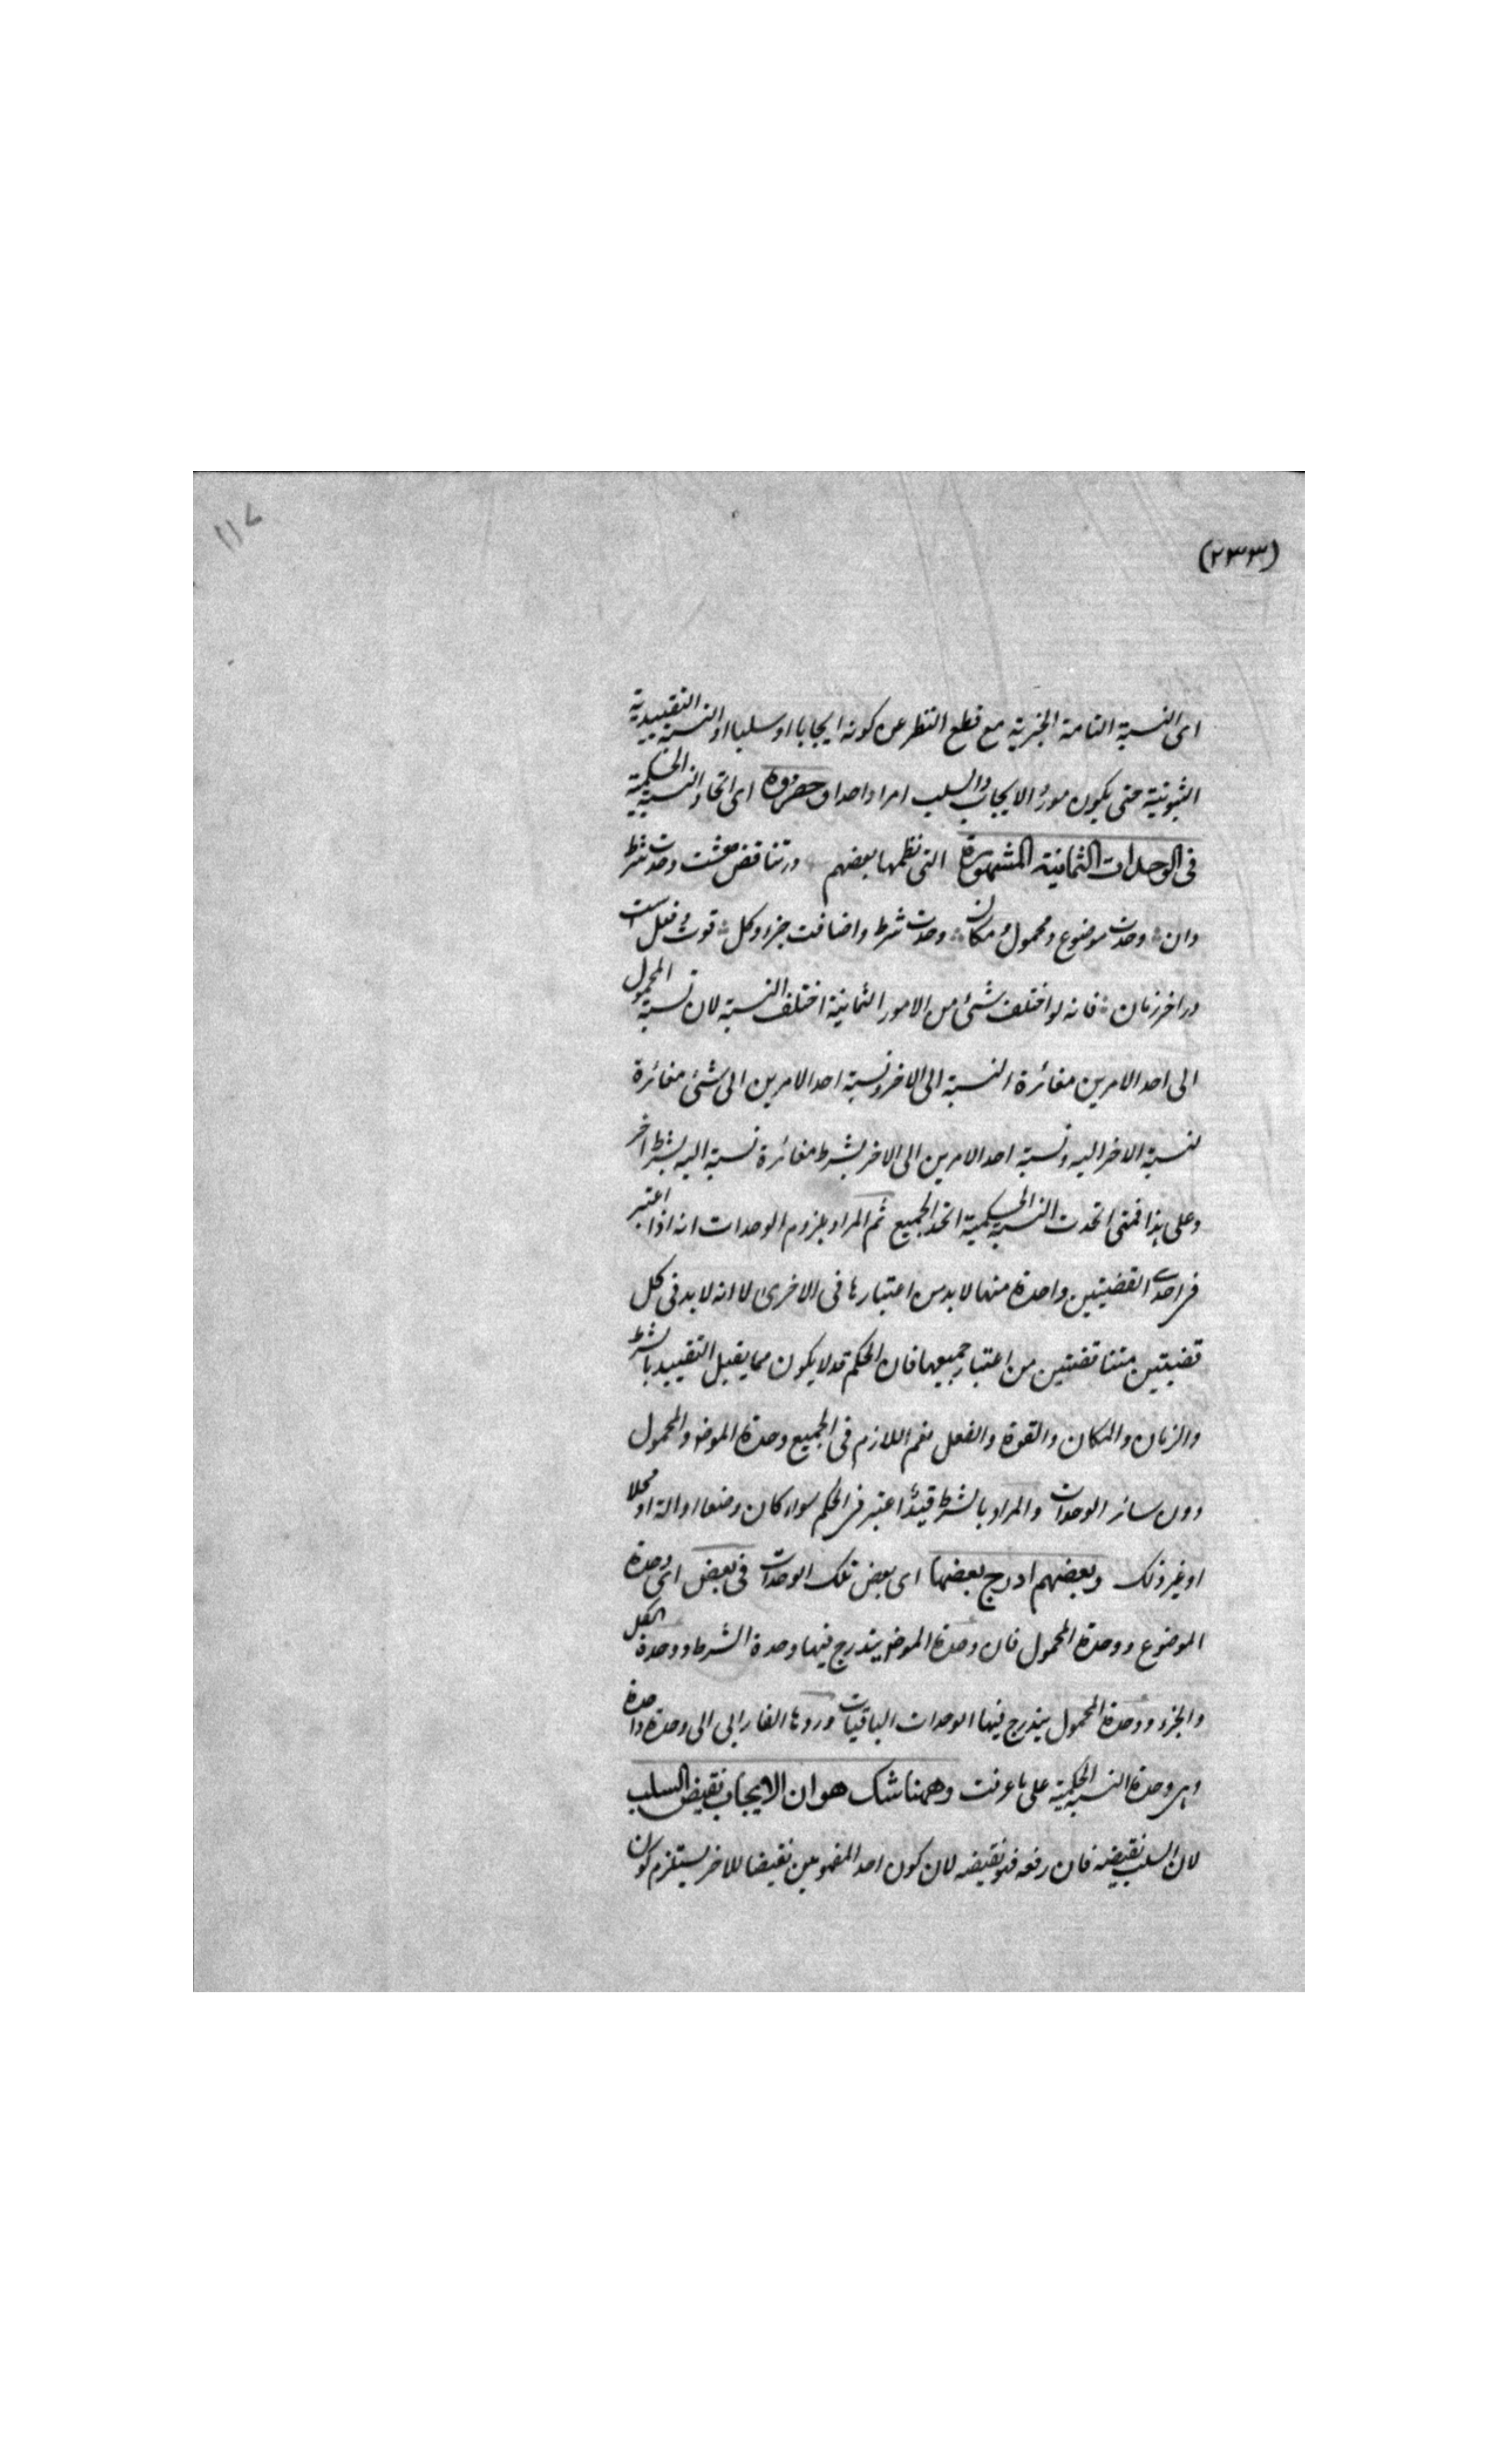 ١١٧
(٢٣٣)
اى النسبة التامة الخبرية مع قطع النظر عن كونه ايجابا او سلبا او النسبة التقييدية
الثبوتية حتى يكون مورد الايجاب والسلب امرا واحدا وحصروه اى اتحاد النسبة الحكمية
فى الوحدات الثمانية المشهورة التى نظمها بعضهم درتناقض هشت وحدت شرط
دان وحدت موضوع ومحمول و مكان وحدت شرط واضافت جزء وكل قوت و فعل است
در اخر زمان فانه لو اختلف شئ من الامور الثمانية اختلف النسبة لان نسبة المحمول
الى احد الامرين مغائرة لنسبة الى الاخر ونسبة احد الامرين الى شئ مغائرة
لنسبة الاخر اليه ونسبة احد الامرين الى الاخر بشرط مغائرة نسبة اليه بشرط اخر
وعلى هذا فمتى اتحدت النسبة الحكمية اتحد الجميع ثم المراد بلزوم الوحدات انه اذا اعتبر
فى احدى القضيتين واحدة منها لا بد من اعتبارها فى الاخرى لا انه لا بد فى كل
قضيتين متناقضتين من اعتبار جميعها فان الحكم قد لا يكون مما يقبل التقييد بالشرط
والزمان والمكان والقوة والفعل نعم اللازم فى الجميع وحدة الموضو والمحمول
دون سائر الوحدات والمراد بالشرط قيد اعتبر فى الحكم سواء كان وضعا او الة او محلا
او غير ذلك وبعضهم ادرج بعضها اى بعض تلك الوحدات فى بعض اى وحدة
الموضوع ووحدة المحمول فان وحدة الموضو يندرج فيها وحدة الشرط ووحدة الكل
والجزء ووحدة المحمول يندرج فيها الوحدات الباقيات وردها الفارابى الى وحدة واحدة
وهى وحدة النسبة الحكمية على ما عرفت وههنا شك هو ان الايجاب نقيض السلب
لان السلب نقيضه فان رفعه فهو نقيضه لان كون احد المفهومين نقيضا للاخر يستلزم كون